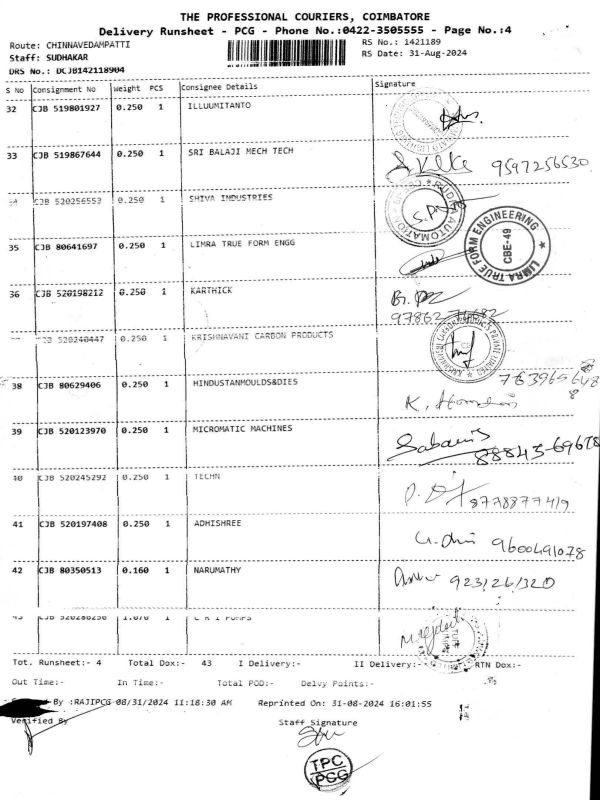 THE PROFESSIONAL COURIERS, COIMBATORE
Delivery Runsheet - PCG - Phone No.:0422-3505555 - Page No.:4
Route: CHINNAVEDAMPATTI RS No.: 1421189
Staff: SUDHAKAR RS Date: 31-Aug-2024
DRS No.: DCJB142118904
S No Consignment No Weight PCS Consignee Details Signature
32 CJB 519801927 0.250 1 ILLUUMITANTO
33 CJB 519867644 0.250 1 SRI BALAJI MECH TECH 9597256530
34 CJB 520256553 0.250 1 SHIVA INDUSTRIES
35 CJB 80641697 0.250 1 LIMRA TRUE FORM ENGG
LIMRA TRUE FORM ENGINEERING
CBE-49
36 CJB 520198212 0.250 1 KARTHICK
37 CJB 520240447 0.250 1 KRISHNAVANI CARBON PRODUCTS
38 CJB 80629406 0.250 1 HINDUSTANMOULDS&DIES
39 CJB 520123970 0.250 1 MICROMATIC MACHINES
88843-69678
40 CJB 520245292 0.250 1 TECHN
8778877419
41 CJB 520197408 0.250 1 ADHISHREE
9600491078
42 CJB 80350513 0.160 1 NARUMATHY
9231261320
43 CJB 520280250 1.070 1 C R I PUMPS
Tot. Runsheet:- 4 Total Dox:- 43 I Delivery:- II Delivery:- RTN Dox:-
Out Time:- In Time:- Total POD:- Delvy Points:-
By :RAJIPCG 08/31/2024 11:18:30 AM Reprinted On: 31-08-2024 16:01:55
Verified By Staff Signature
TPC
PCG